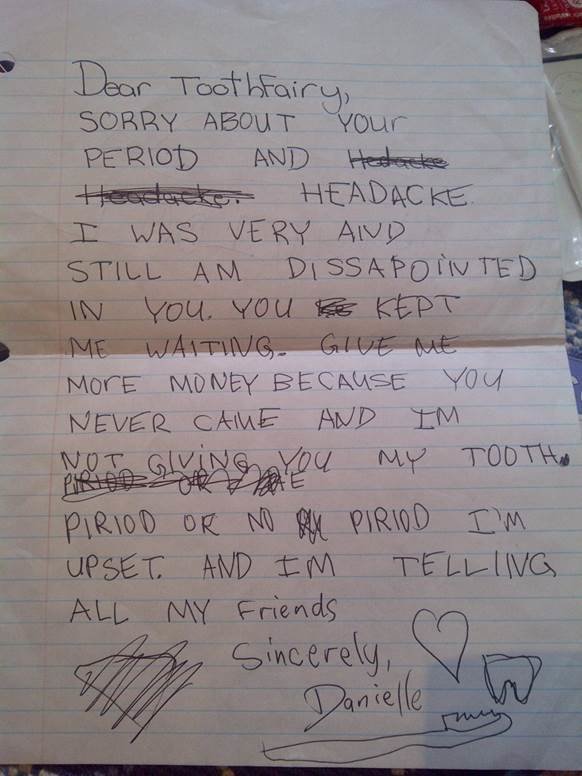 Dear ToothFairy,
SORRY ABOUT YOur
PERIOD AND Hedacke
Headacke. HEADACKE.
I WAS VERY AND
STILL AM DISSAPOINTED
IN YOU. YOU KEPT
ME WAITING. GIVE ME
MOrE MONEY BECAUSE YOU
NEVER CAME AND IM
NOT GIVING YOU MY TOOTH.
PIRIOD OR
PIRIOD OR NO PIRIOD I'M
UPSET. AND IM TELLING
ALL MY Friends
Sincerely,
Danielle